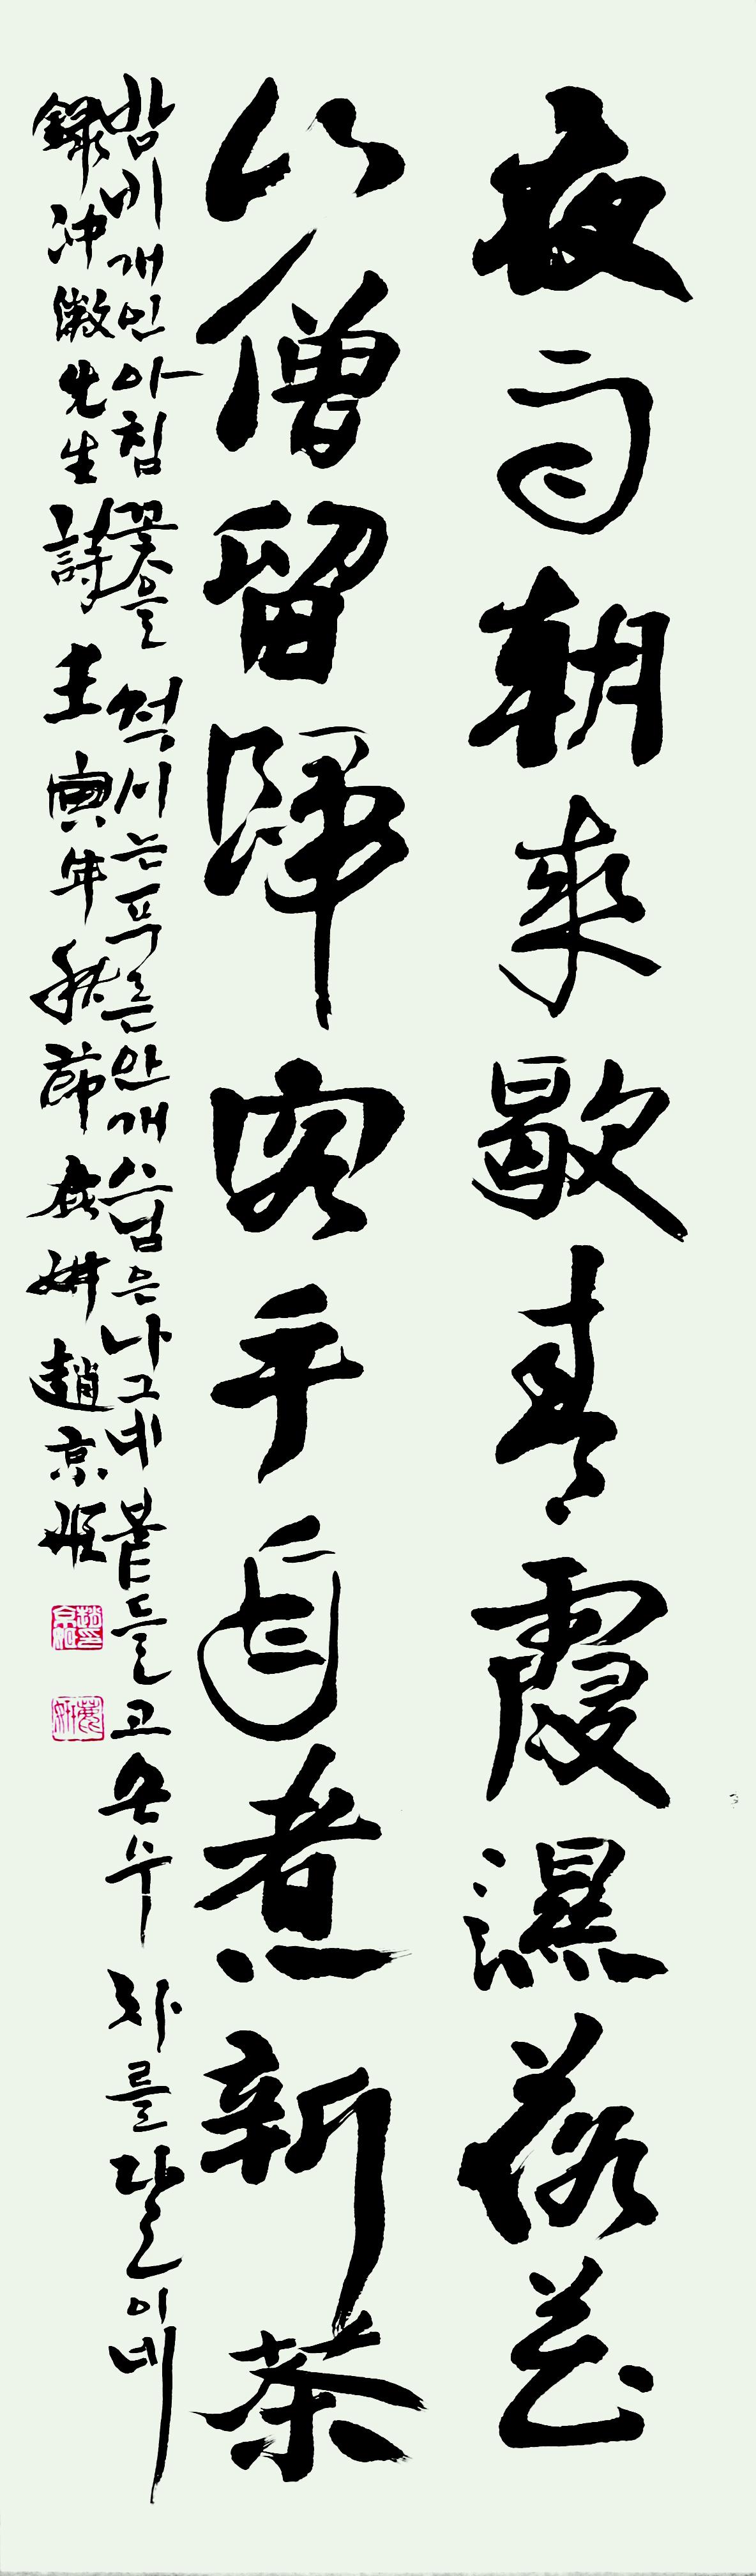 夜雨朝來歇靑霞濕落花
山僧留歸客手自煮新茶
밤비 개인 아침 꽃을 적시는 푸른 안개 스님은 나그네 붙들고 손수 차를 달이네
錄冲徽先生詩 壬寅年秋節 姸 趙京姬